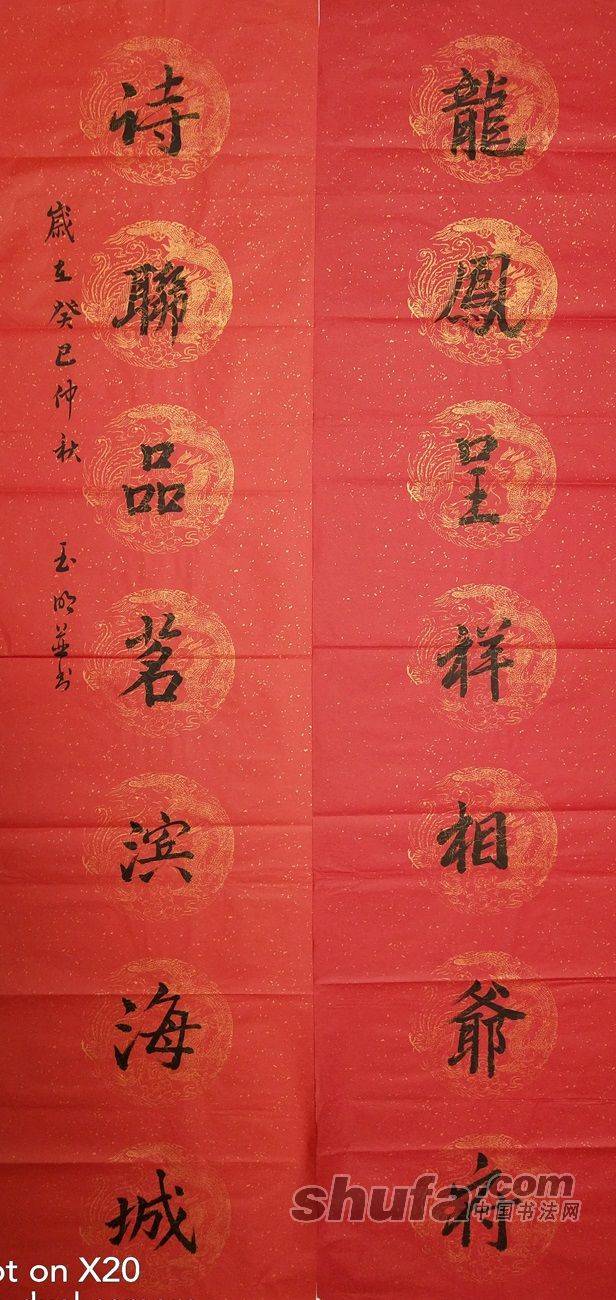 龍鳳呈祥相爺府
诗聯品茗滨海城
歲在癸巳仲秋 玉明並书
shufa.com
中国书法网
ot on X20